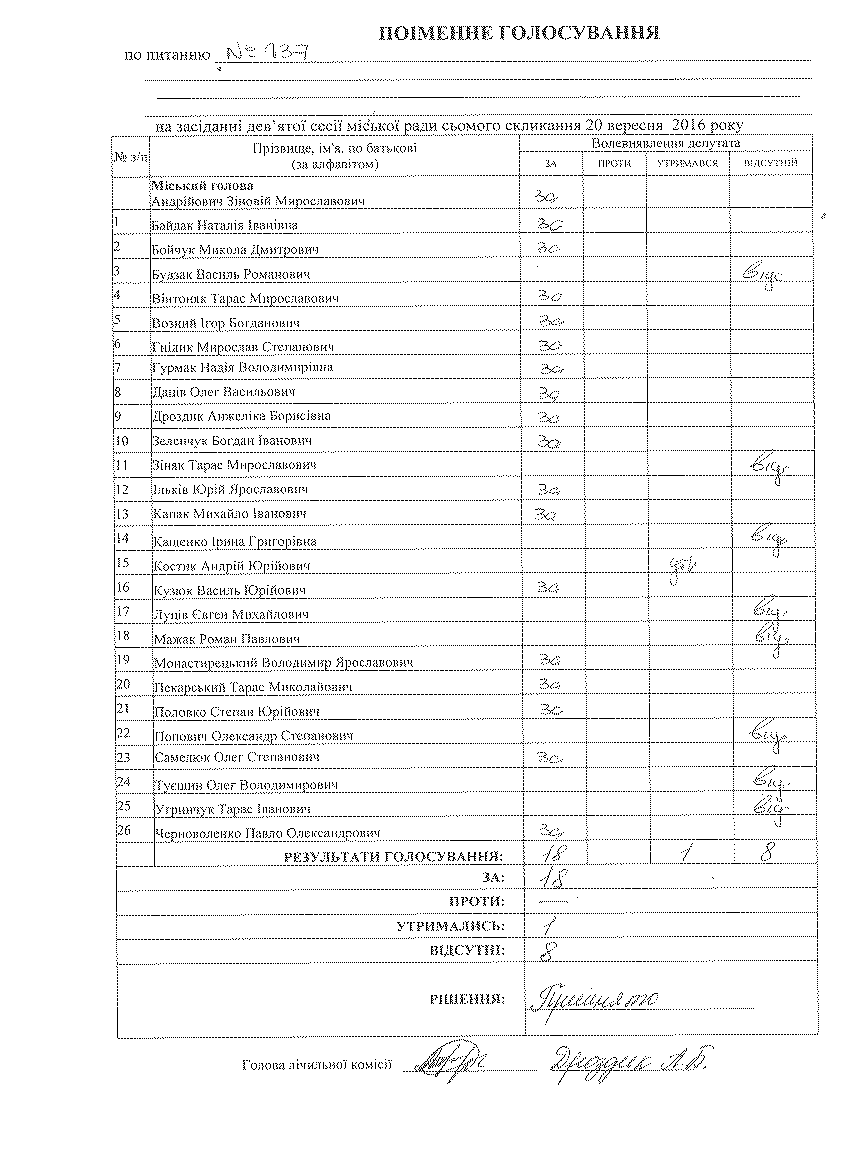 ПОІМЕННЕ ГОЛОСУВАННЯ
по питанню № 137
на засіданні дев'ятої сесії міської ради сьомого скликання 20 вересня 2016 року
№ з/п Прізвище, ім'я, по батькові (за алфавітом) Волевиявлення депутата
ЗА ПРОТИ УТРИМАВСЯ ВІДСУТНІЙ
Міський голова
Андрійович Зіновій Мирославович за
1 Байдак Наталія Іванівна за
2 Бойчук Микола Дмитрович за
3 Будзак Василь Романович від.
4 Вінтоняк Тарас Мирославович за
5 Возний Ігор Богданович за
6 Гнідик Мирослав Степанович за
7 Гурмак Надія Володимирівна за
8 Даців Олег Васильович за
9 Дроздик Анжеліка Борисівна за
10 Зеленчук Богдан Іванович за
11 Зіняк Тарас Мирославович від.
12 Ільків Юрій Ярославович за
13 Капак Михайло Іванович за
14 Кащенко Ірина Григорівна від.
15 Костик Андрій Юрійович утр
16 Кузюк Василь Юрійович за
17 Луців Євген Михайлович від.
18 Мажак Роман Павлович від.
19 Монастирецький Володимир Ярославович за
20 Пекарський Тарас Миколайович за
21 Половко Степан Юрійович за
22 Попович Олександр Степанович від.
23 Самелюк Олег Степанович за
24 Туєшин Олег Володимирович від.
25 Угринчук Тарас Іванович від.
26 Черноволенко Павло Олександрович за
РЕЗУЛЬТАТИ ГОЛОСУВАННЯ: 18 1 8
ЗА: 18
ПРОТИ: —
УТРИМАЛИСЬ: 1
ВІДСУТНІ: 8
РІШЕННЯ: Прийнято
Голова лічильної комісії Дроздик А.Б.